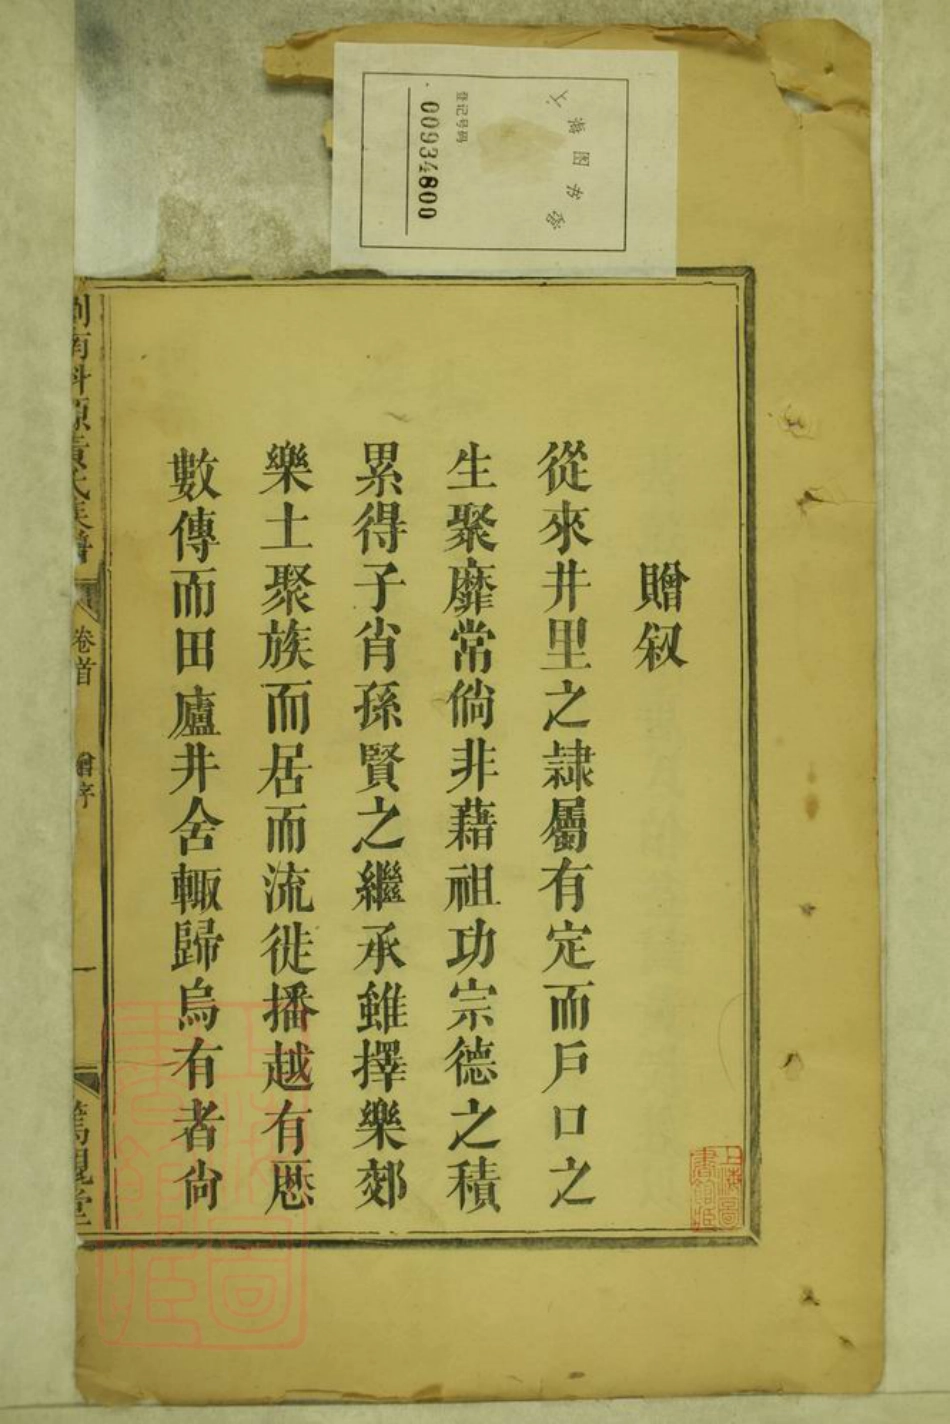 贈叙
從來井里之隷屬有定而戶口之
生聚靡常倘非藉祖功宗德之積
累得子肖孫賢之繼承雖擇樂郊
樂土聚族而居而流徙播越有歷
數傳而田廬井舍輙歸烏有者尙
南科源黃氏族譜
卷首
贈序
一
篤親堂
上海图书馆
登记号码
00934600
上海圖書館藏